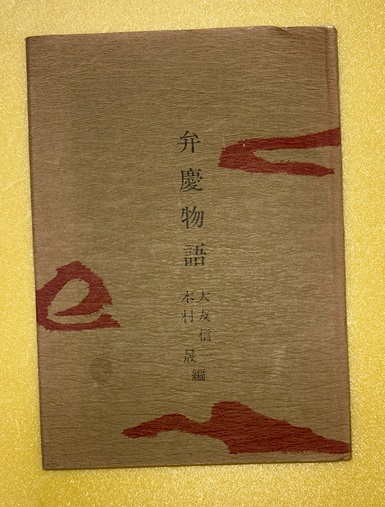 弁慶物語
大友信一
木村晟
編